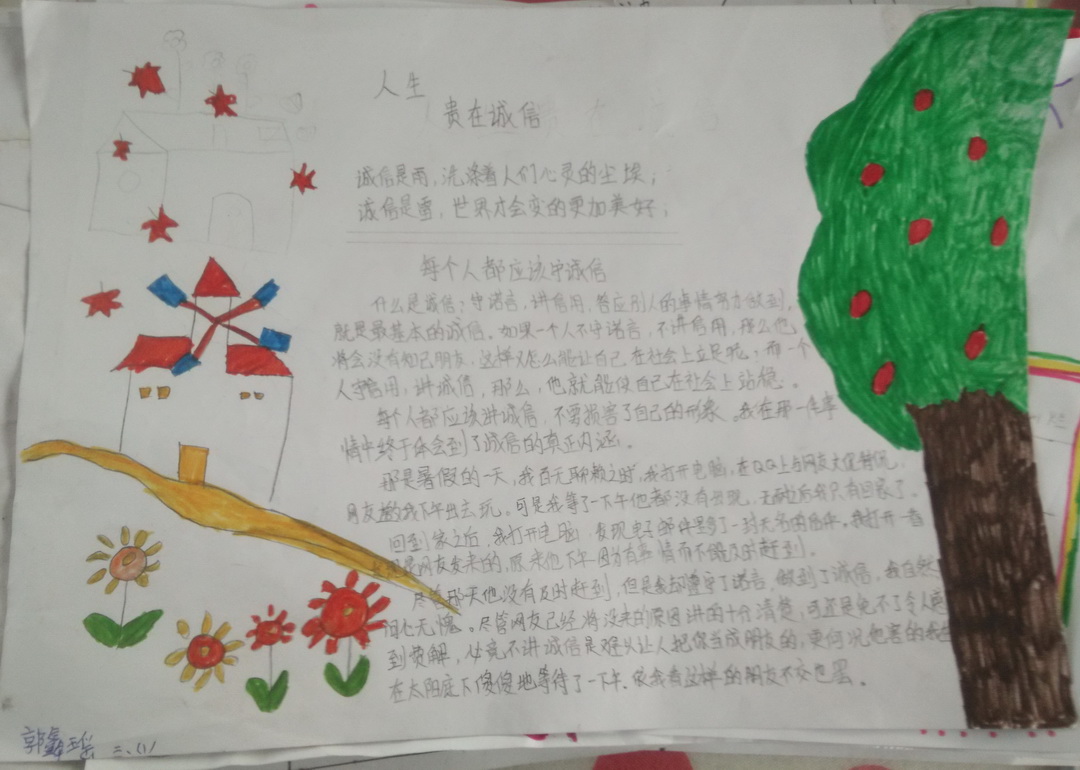 人生
贵在诚信
诚信是雨，洗涤着人们心灵的尘埃；
诚信是雷，世界才会变的更加美好；
每个人都应该守诚信
什么是诚信？守诺言，讲信用，答应别人的事情努力做到，
就是最基本的诚信。如果一个人不守诺言，不讲信用，那么他
将会没有知己朋友，这样又怎么能让自己在社会上立足呢，而一个
人守信用，讲诚信，那么，他就能使自己在社会上站稳。
每个人都应该讲诚信，不要损害了自己的形象。我在那一件事
情中终于体会到了诚信的真正内涵。
那是暑假的一天，我百无聊赖之时，我打开电脑，在QQ上与网友
网友邀我下午出去玩。可是我等了一下午他都没有出现，无耐之后我只有回家了。
回到家之后，我打开电脑，发现电子邮件多了一封无名的信件。我打开一看
是网友发来的，原来他下午因为有事情而不能及时赶到。
尽管那天他没有及时赶到，但是我却遵守了诺言，做到了诚信，我自然
问心无愧。尽管网友已经将没来的原因讲的十分清楚，可还是免不了令人感
到费解，毕竟不讲诚信是难以让人把你当成朋友的，更何况他害的我
在太阳底下傻傻地等待了一下午，依我看这样的朋友不交也罢。
郭 瑶 三、（1）